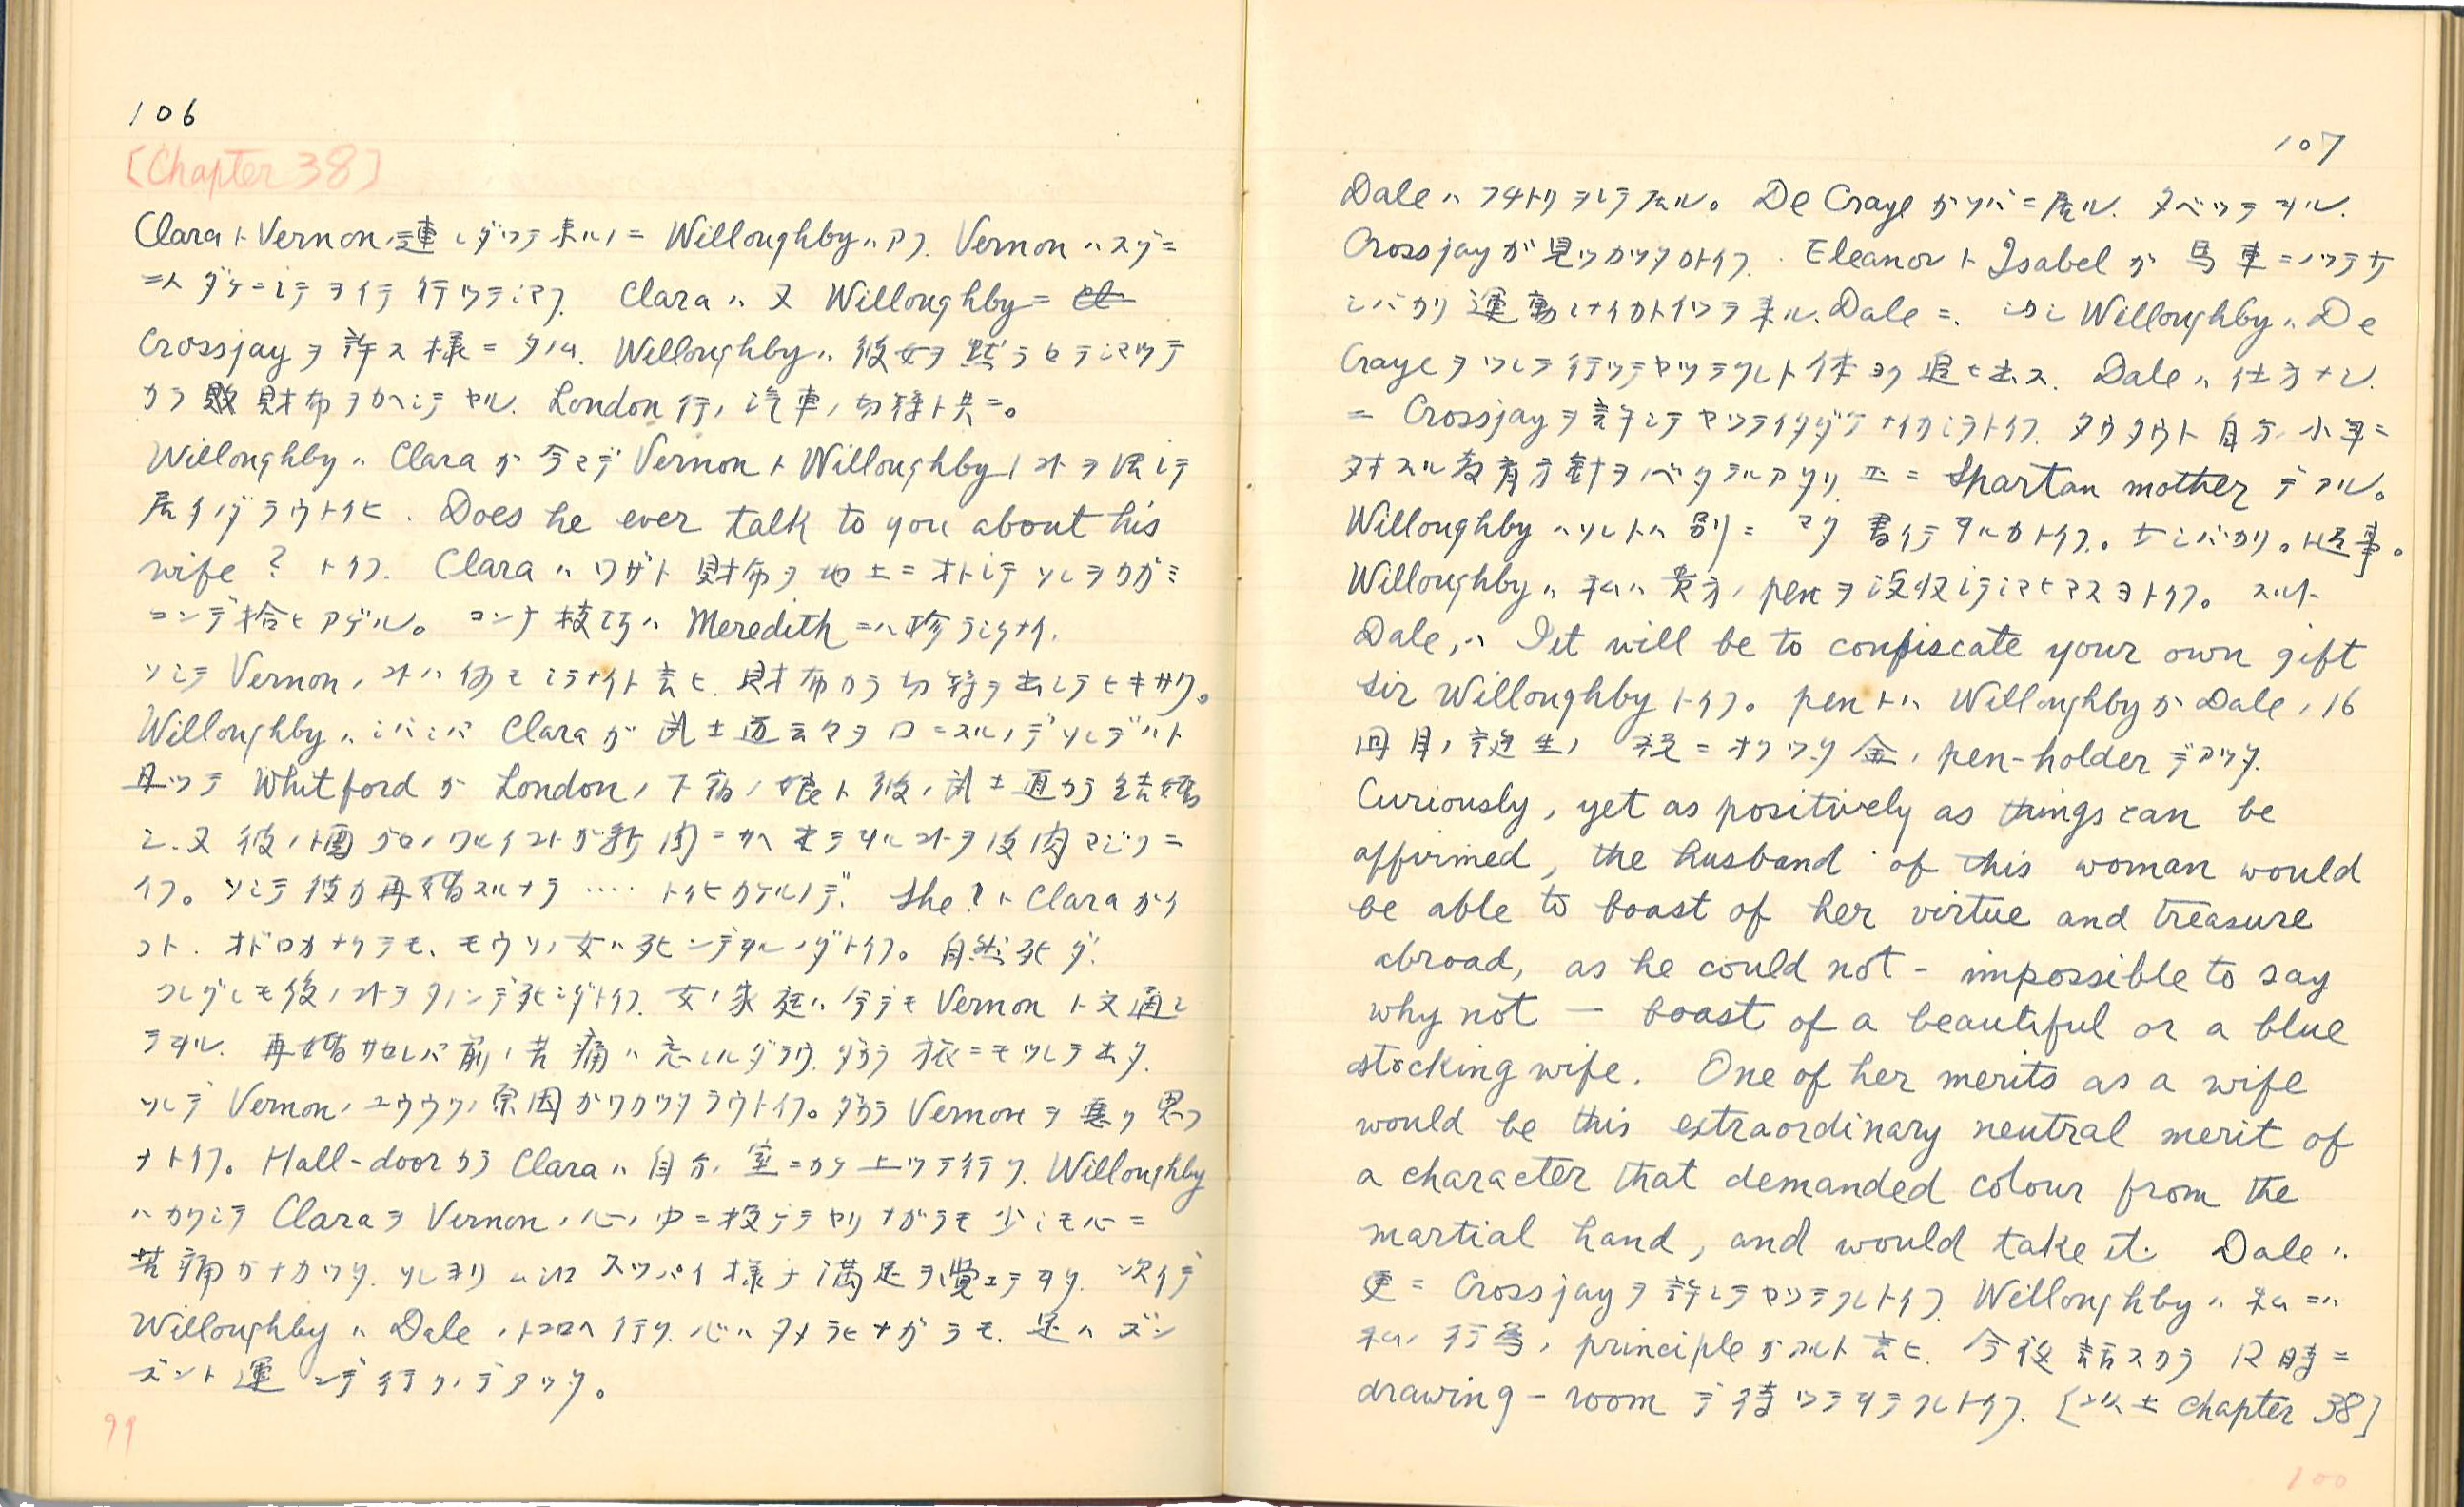 106
[Chapter 38]
Clara ト Vernon ノ連レダツテ来ルノニ Willoughby ハアフ. Vernon ハスグニ
二人ダケニシテヲイテ行ツテシマフ. Clara ハ又 Willoughby ニ
Crossjay ヲ許ス様ニタノム. Willoughby ハ彼女ヲ黙ラセテシマツテ
カラ財布ヲカヘシテヤル. London 行ノ汽車ノ切符ト共ニ。
Willoughby ハ Clara ガ今マデ Vernon ト Willoughby ノコトヲ
居タノダラウト伝ヒ. Does he ever talk to you about his
wife ? トイフ. Clara ハワザト財布ヲ地上ニオトシテソレヲカガミ
コンデ拾ヒアゲル。コンナ技巧ハ Meredith ニハ珍ラシクナイ.
ソシテ Vernon ノコトハ何モシラナイト言ヒ. 財布カラ切符ヲ出シテヒキサク。
Willoughby ハシバシバ Clara ガ武士道云々ヲ口ニスルノデソレデハト
思ツテ Whitford ガ London ノ下宿ノ娘ト彼ノ武士道カラ結婚
シ. 又彼ノ ワルイコトガ新聞ニ ヲルコトヲ皮肉マジリニ
イフ。ソシテ彼ガ再婚スルナラ ‥‥ トイヒカケルノデ. She ? ト Clara ガイ
フト. オドロカナクテモ、モウソノ女ハ死ンデヰルノダトイフ。自然死ダ.
ケレドモ彼ノコトヲタノンデ死ンダトイフ. 女ノ家庭ハ今デモ Vernon ト文通シ
テヰル. 再婚サセレバ前ノ苦痛ハ忘レルダラウ. ダカラ旅ニモツレテ出タ.
ソレデ Vernon ノユウウツノ原因ガワカツタラウトイフ。ダカラ Vernon ヲ悪ク思フ
ナトイフ。Hall-door カラ Clara ハ自分ノ室ニカケ上ツテ行ク. Willoughby
ハカクシテ Clara ヲ Vernon ノ心ノ中ニ投ゲテヤリナガラモ少シモ心ニ
苦痛ガナカツタ. ソレヨリムシロスツパイ様ナ満足ヲ覚エテヰタ. 次イデ
Willoughby ハ Dale ノトコロヘ行ク. 心ハタメラヒナガラモ. 足ハズン
ズント運ンデ行クノデアツタ。
99
107
Dale ハフチトリヲシテヰル。De Craye ガソバニ居ル. タベツテヰル.
Crossjay ガ見ツカツタカトイフ. Eleanor ト Isabel ガ馬車ニノツテ少
シバカリ運動シナイカトイツテ来ル. Dale ニ. シカシ Willoughby ハ De
Craye ヲツレテ行ツテヤツテクレト体ヨク追ヒ出ス. Dale ハ仕方ナシ
ニ Crossjay ヲ許シテヤツテイタダケナイカシラトイフ. タウタウト自分ノ少年ニ
対スル教育方針ヲノベタテルアタリ正ニ Spartan mother デアル。
Willoughby ハソレトハ別ニマダ書イテヰルカトイフ。少シバカリ。ト返事。
Willoughby ハ私ハ貴方ノ pen ヲ没収シテシマヒマスヨトイフ。スルト
Dale ハ It will be to confiscate your own gift
Sir Willoughby トイフ。pen トハ Willoughby ガ Dale ノ 16
回目ノ誕生ノ祝ニオクツタ金ノ pen-holder デアツタ.
Curiously, yet as positively as things can be
affirmed, the husband of this woman would
be able to boast of her virtue and treasure
abroad, as he could not - impossible to say
why not — boast of a beautiful or a blue
stocking wife. One of her merits as a wife
would be this extraordinary neutral merit of
a character that demanded colour from the
martial hand, and would take it. Dale ハ
更ニ Crossjay ヲ許シテヤツテクレトイフ. Willoughby ハ私ニハ
私ノ行為ノ principle ガアルト言ヒ. 今夜話スカラ 12 時ニ
drawing-room デ待ツテヰテクレトイフ. [以上 Chapter 38]
100